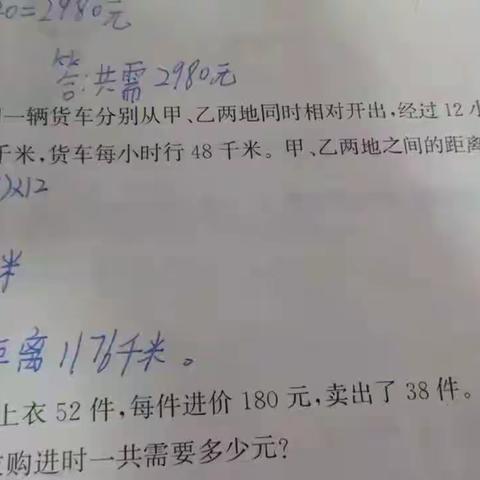 0=2980元
答:共需2980元
一辆货车分别从甲、乙两地同时相对开出,经过 12 小
千米,货车每小时行 48 千米。甲、乙两地之间的距离
)×12
米
距离1176千米。
上衣 52 件,每件进价 180 元,卖出了 38 件。
购进时一共需要多少元?